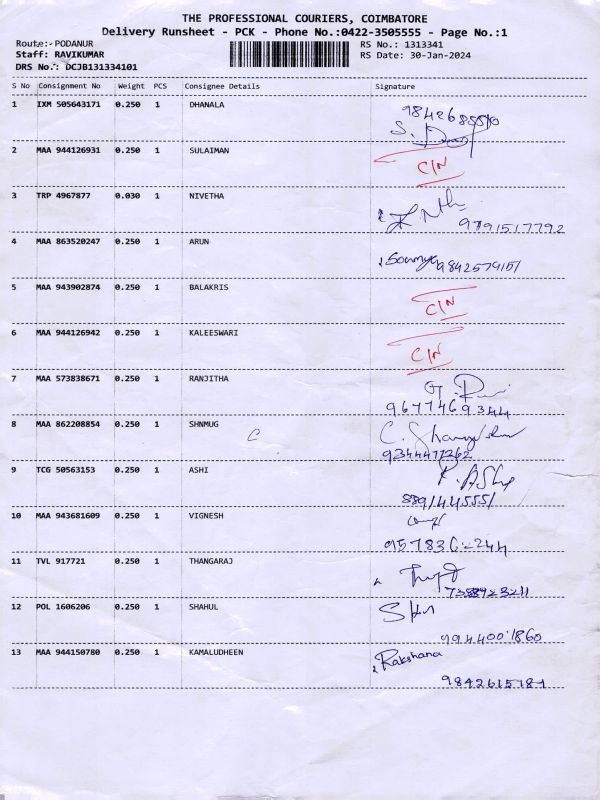 THE PROFESSIONAL COURIERS, COIMBATORE
Delivery Runsheet - PCK - Phone No.:0422-3505555 - Page No.:1
Route:- PODANUR RS No.: 1313341
Staff: RAVIKUMAR RS Date: 30-Jan-2024
DRS No.: DCJB131334101
S No Consignment No Weight PCS Consignee Details Signature
1 IXM 505643171 0.250 1 DHANALA
S.
2 MAA 944126931 0.250 1 SULAIMAN C/N
3 TRP 4967877 0.030 1 NIVETHA
9791517792
4 MAA 863520247 0.250 1 ARUN
Sowmya 9842579151
5 MAA 943902874 0.250 1 BALAKRIS C/N
6 MAA 944126942 0.250 1 KALEESWARI C/N
7 MAA 573838671 0.250 1 RANJITHA
9677469344
8 MAA 862208854 0.250 1 SHNMUG C.
C
9344477262
9 TCG 50563153 0.250 1 ASHI
8891445551
10 MAA 943681609 0.250 1 VIGNESH
11 TVL 917721 0.250 1 THANGARAJ
12 POL 1606206 0.250 1 SHAHUL
9944001860
13 MAA 944150780 0.250 1 KAMALUDHEEN Rakshana